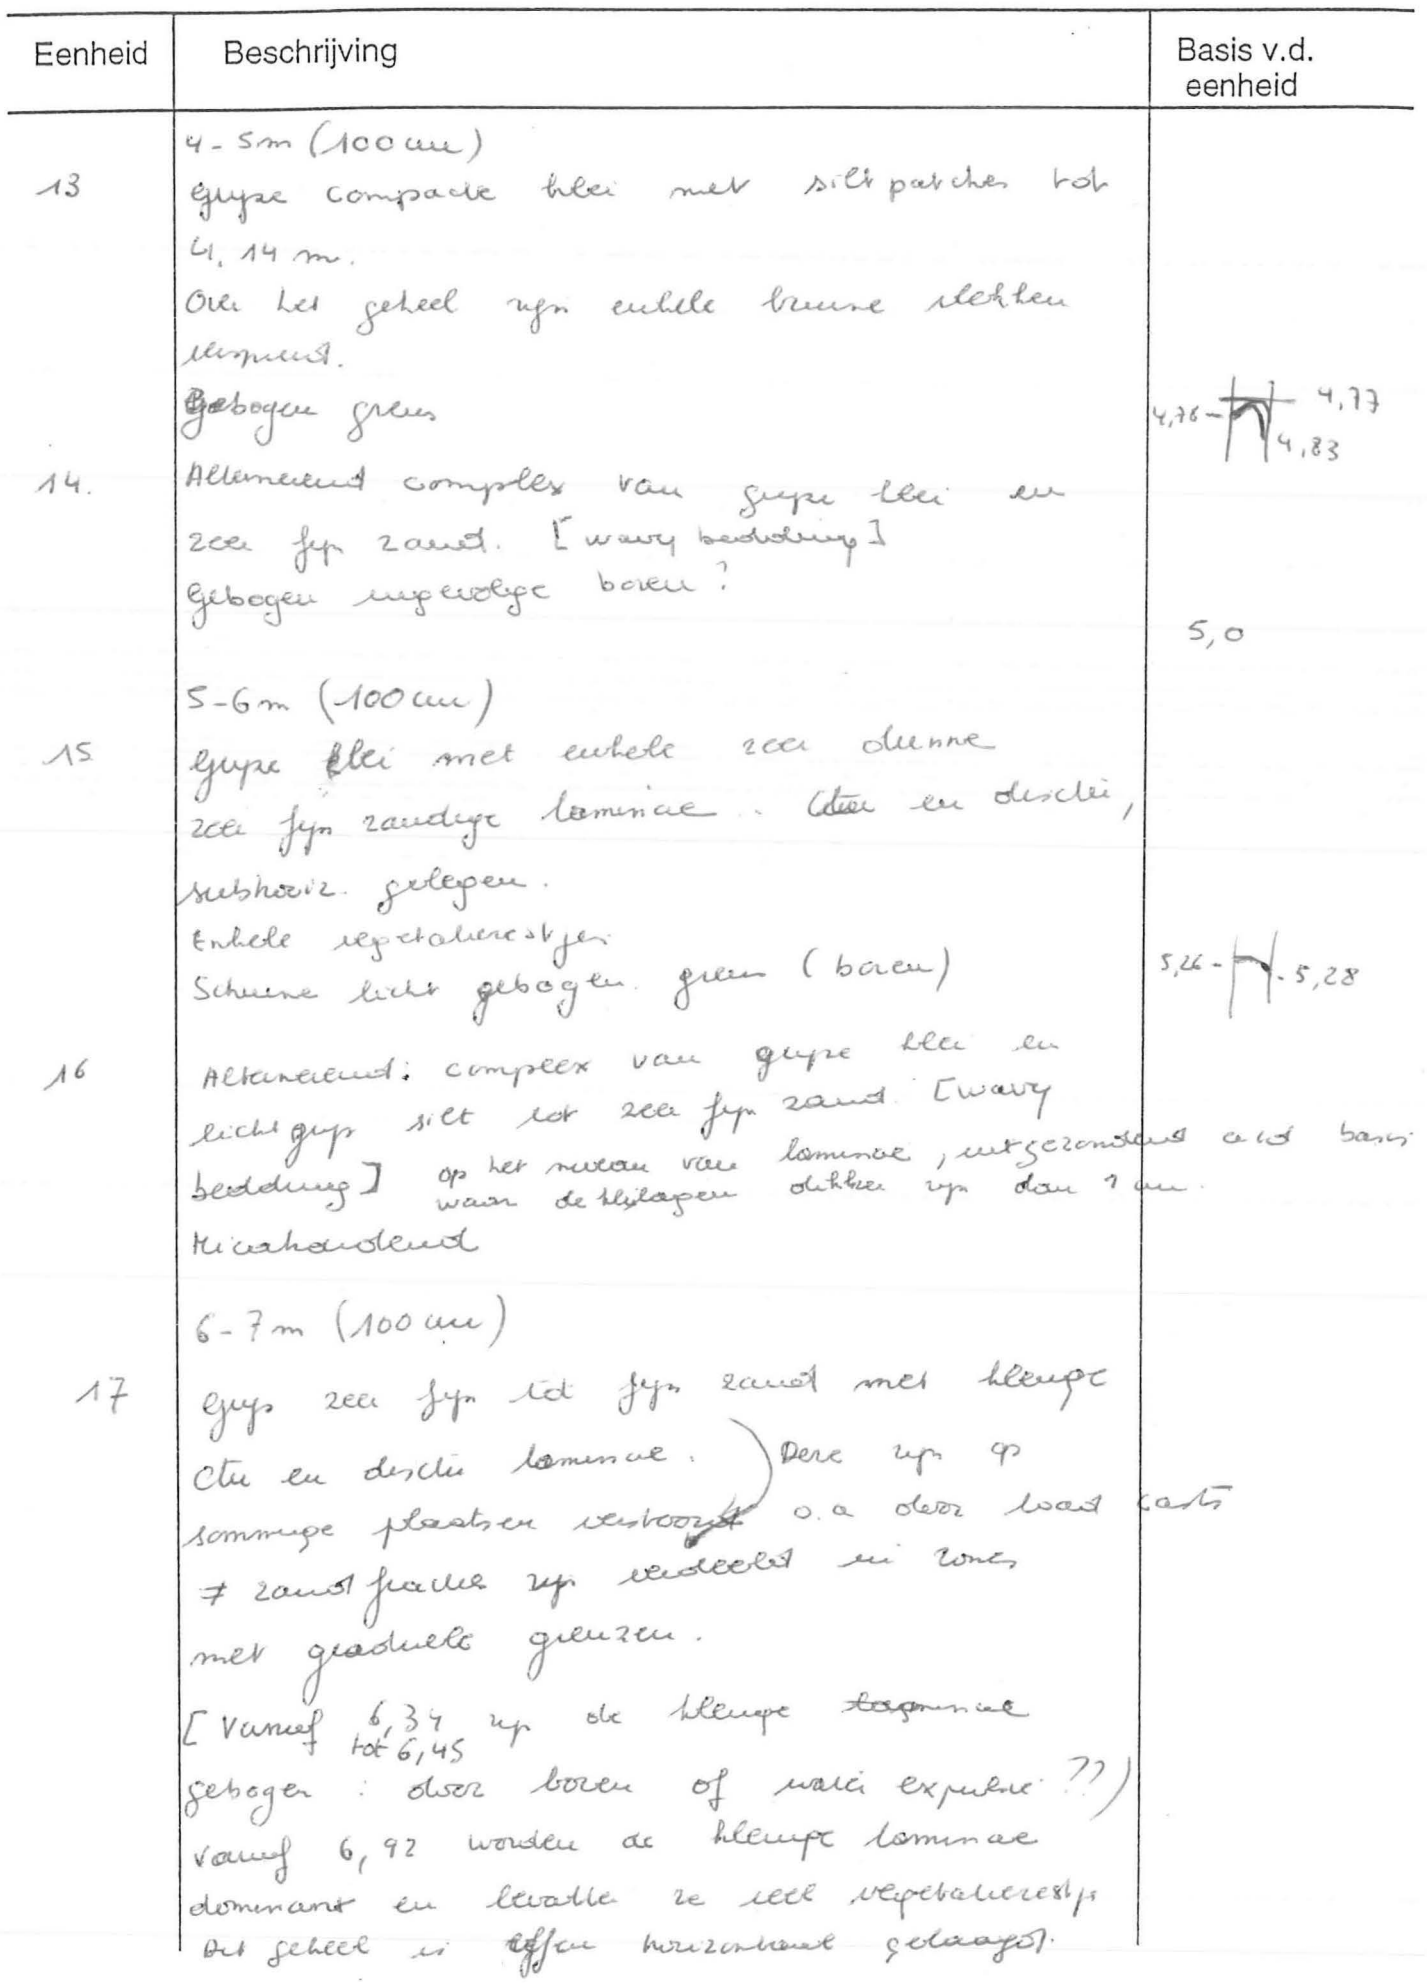 Eenheid Beschrijving Basis v.d.
eenheid
4-5m (100cm)
13 Grijze compacte klei met siltpatches tot
4,14 m.
Over het geheel zijn enkele bruine vlekken
verspreid.
Gebogen grens 4,76 - 4,77
4,83
14. Alternerend complex van grijze klei en
zeer fijn zand. [wavy bedding]
Gebogen ingevolge boren?
5,0
5-6m (100cm)
15 Grijze klei met enkele zeer dunne
zeer fijn zandige laminae. Ctu en disctu,
subhoriz. gelegen.
Enkele vegetatierestjes
Schuine licht gebogen grens (boren) 5,26 - - 5,28
16 Alternerend complex van grijze klei en
lichtgrijs silt tot zeer fijn zand. [wavy
bedding] op het niveau van laminae, uitgezonderd a/d basis
waar de kleilagen dikker zijn dan 1 cm.
Micahoudend
6-7m (100cm)
17 Grijs zeer fijn tot fijn zand met kleiige
Ctu en disctu laminae. ) Deze zijn op
sommige plaatsen verstoord o.a door load casts
≠ zandfracties zijn verdeeld in zones
met graduele grenzen.
[Vanaf 6,34 zijn de kleiige laminae
tot 6,45
gebogen : door boren of water expulsie ??)
Vanaf 6,92 worden de kleiige laminae
dominant en bevatten ze veel vegetatierestjes
Dit geheel is effen horizontaal gelaagd.